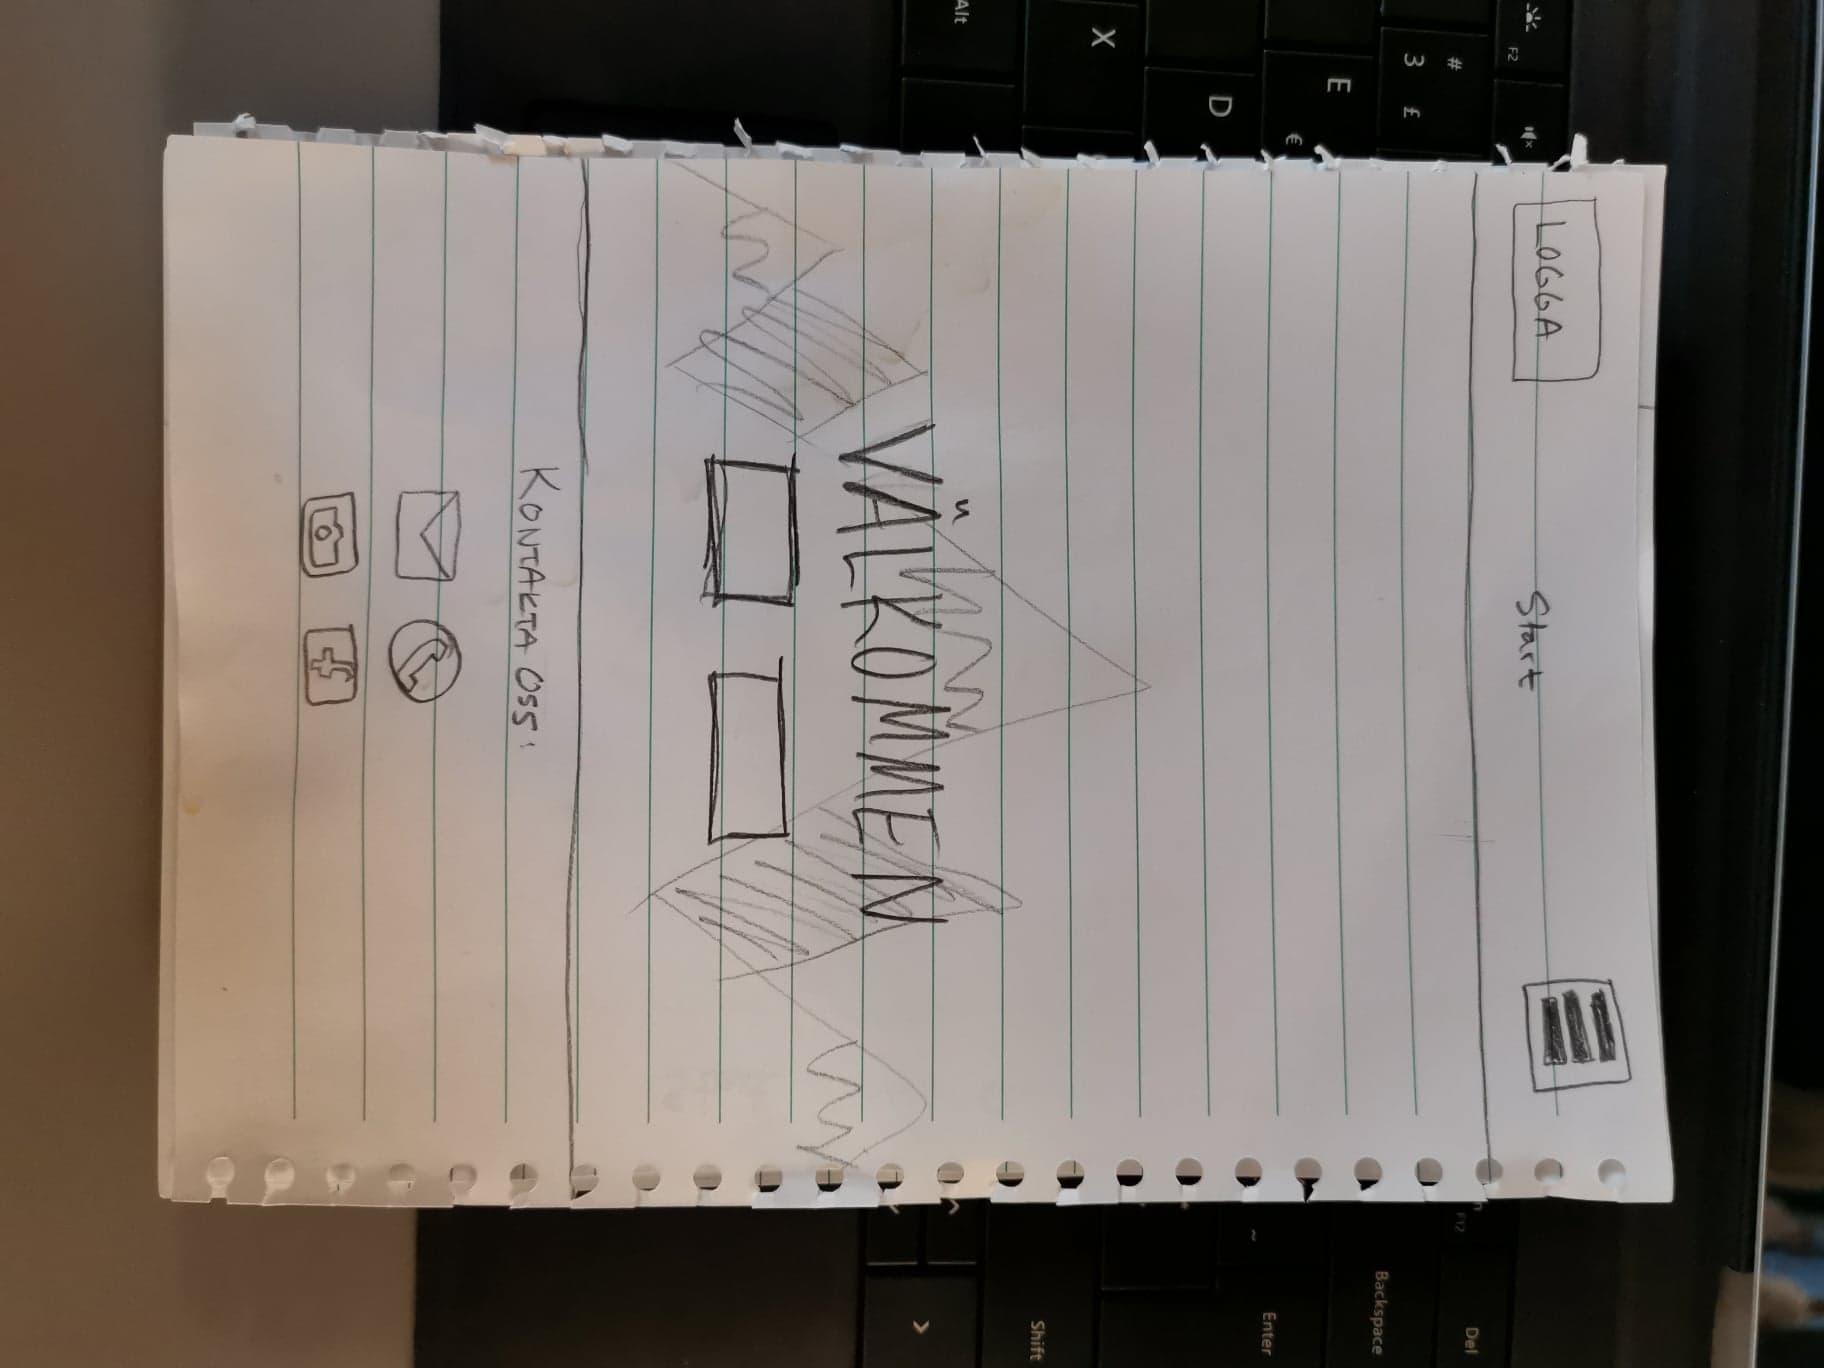 LOGGA
Start
VÄLKOMMEN
KONTAKTA OSS:
f
F2
#
3 £
E
€
D
X
Alt
F12
Del
Backspace
Enter
~
Shift